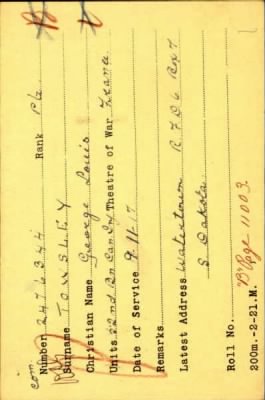 com
Number 2476344 Rank Pte
Surname TOWSLEY
Christian Name George Louis
Units 22nd Bn Can Inf Theatre of War France
Date of Service 9.11.17
Remarks
Latest Address Watertown R 7 D 6 Box 7
S. Dakota.
Roll No. "B" Page 11003.
200m.-2-21.M.